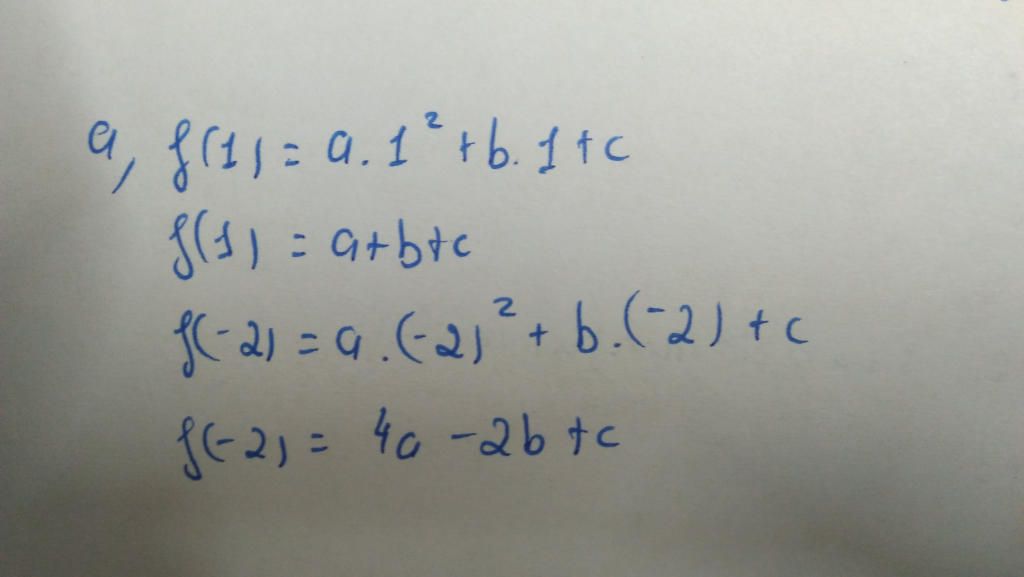 a, f(1) = a.1² + b.1 + c
f(1) = a+b+c
f(-2) = a.(-2)² + b.(-2) + c
f(-2) = 4a - 2b + c